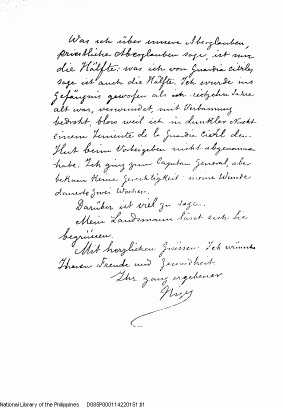 Was ich über unsere Aberglauben,
priestliche Aberglauben sage, ist nur
die Hälfte; was ich von Guardia civiles
sage ist auch die Hälfte. Ich wurde ins
Gefängnis geworfen als ich achtzehn Jahre
alt war, verwundet, mit Verbannung
bedroht, blos weil ich in dunkler Nacht
einem Teniente de la Guardia Civil den
Hut beim Vorbeigehen nicht abgenommen
habe. Ich ging zum Capitan General, aber
bekam keine Gerechtigkeit; meine Wunde
dauerte zwei Wochen.
Darüber ist viel zu sagen.
Mein Landsmann lässt Sie
begrüssen.
Mit herzlichen Grüssen. Ich wünsche
Ihnen Freude und Gesundheit
Ihr ganz ergebener
National Library of the Philippines D085R000114220151.tif